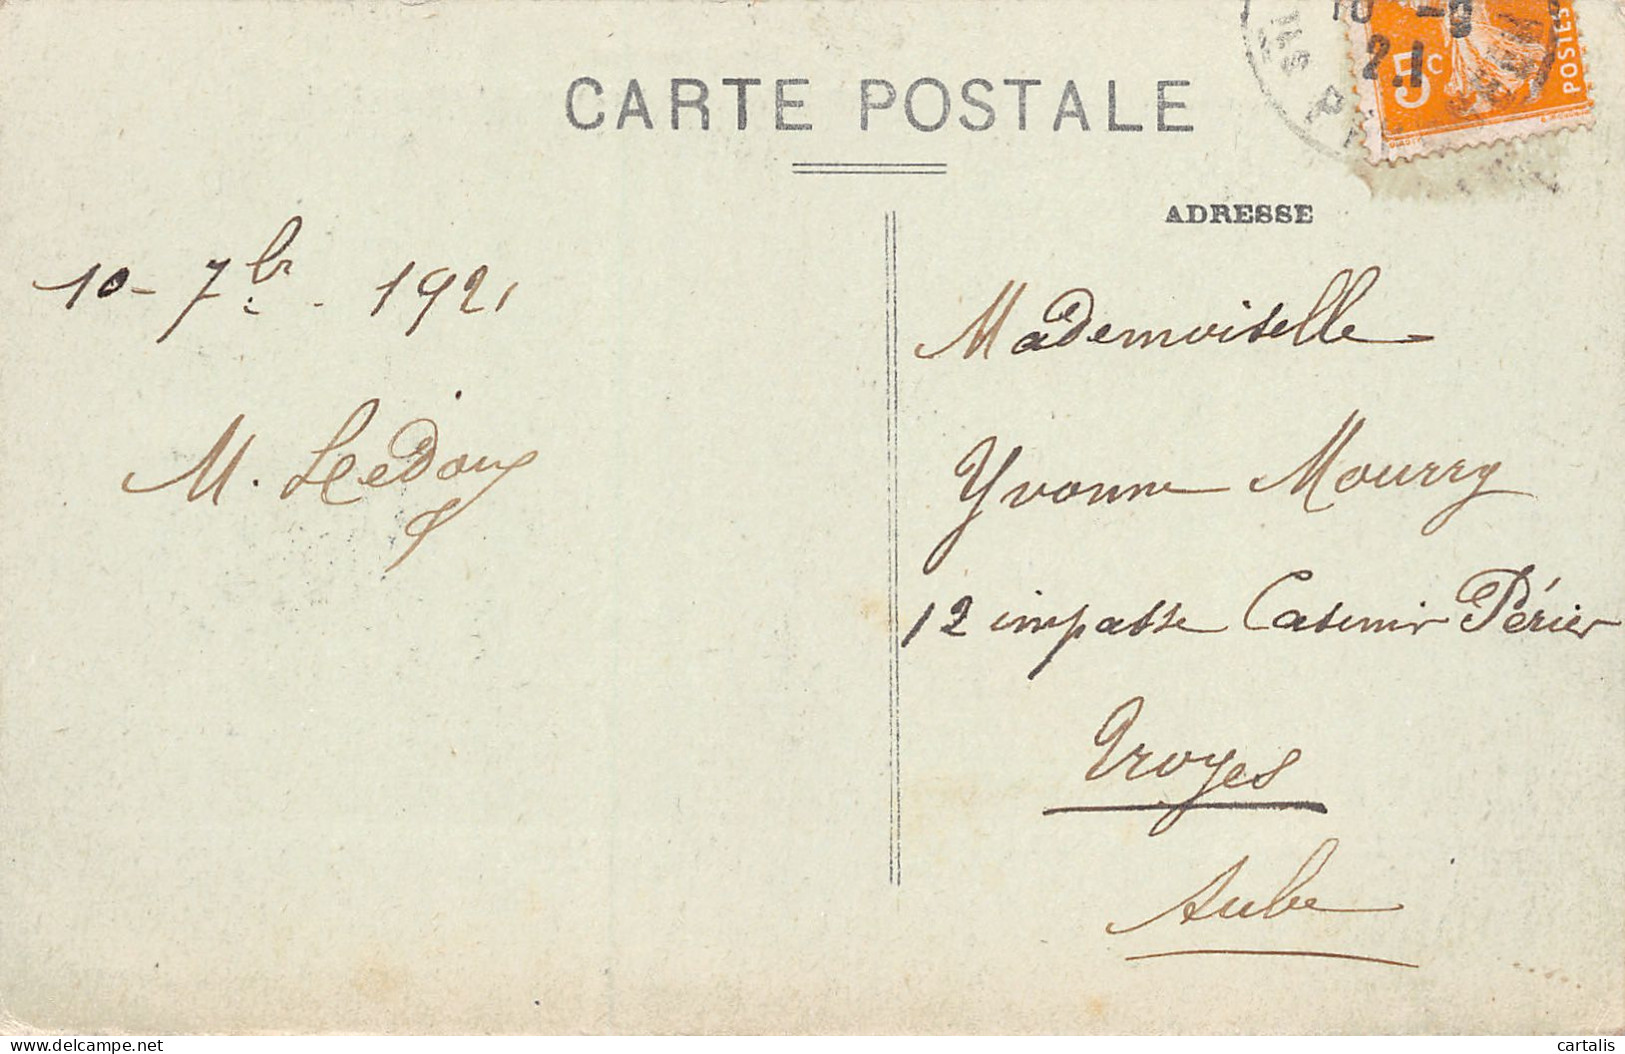 CARTE POSTALE
ADRESSE
5c
POSTES
10 - 9
21
10 - 7br - 1921
M. Ledoux
Mademoiselle
Yvonne Mourry
12 impasse Casimir Périer
Troyes
Aube
delcampe.net
cartalis